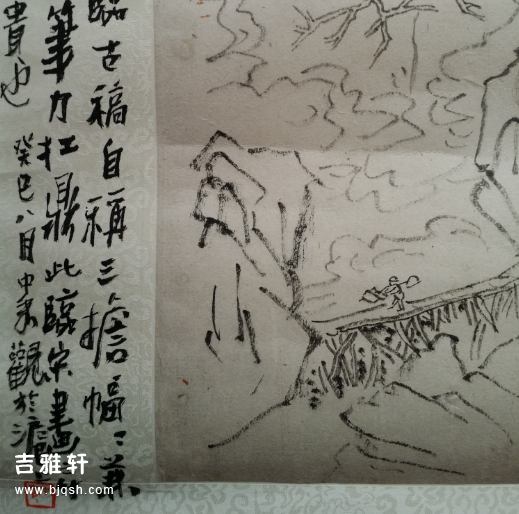 臨古稿自稱三擔幅〻兼
筆力扛鼎此臨宋畫
貴也
癸巳八月中秋觀於滬
吉雅轩
www.bjqsh.com